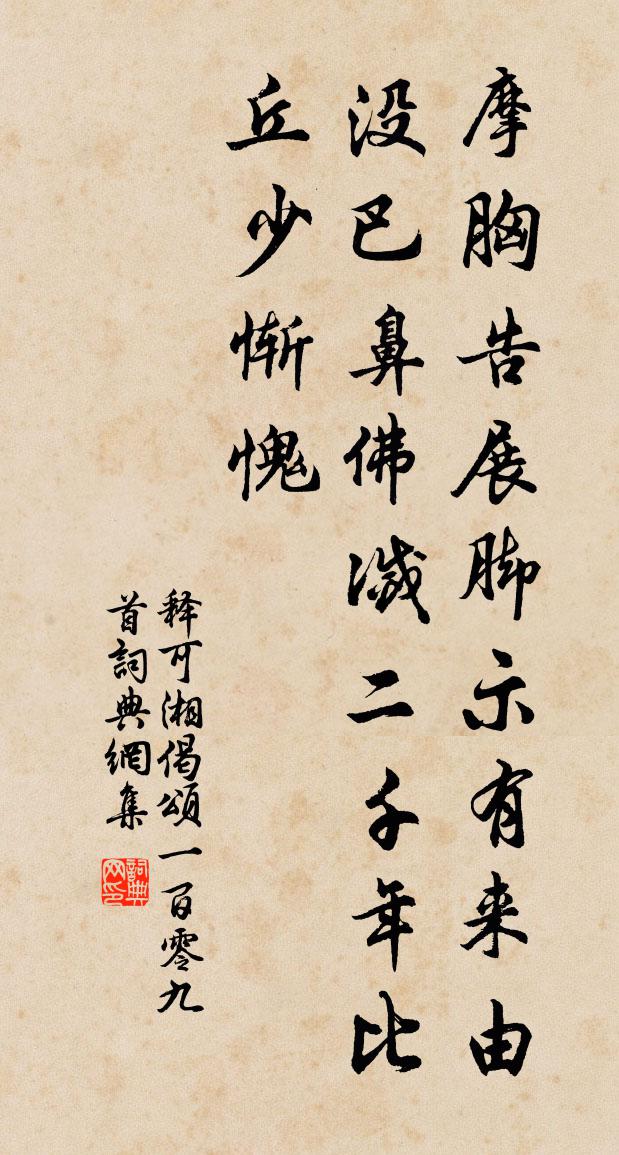 摩胸告展脚示有来由
没巴鼻佛滅二千年比
丘少惭愧
释可湘偈頌一百零九
首詞典網集
詞典
网印